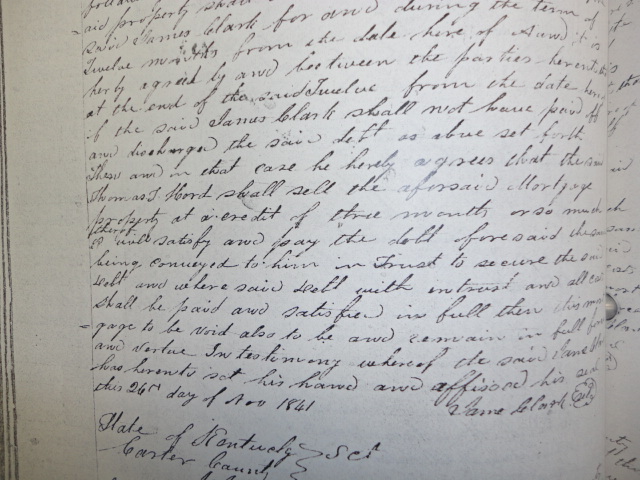 aid property shall
said James Clark for and during the term of
Twelve months from the date here of And it is
herby agreed by and between the parties herento
at the end of the said Twelve from the date here
if the said James Clark shall not have paid off
and discharged the said debt as above set forth
then and in that case he hereby agrees that the said
Thomas J. Hord shall sell the aforsaid Mortgage
property at a credit of three months or so much
thereof
as will satisfy and pay the debt aforesaid the same
being conveyed to him in Trust to secure the said
debt and where said debt with intrust and all
shall be paid and satisfied in full then this mort
gage to be void also to be and remain in full force
and vertue In testimony whereof the said Jame
has herento set his hand and affixed his seal
this 26th day of Nov 1841
Jame Clark
State of Kentucky
Carter County } Sct